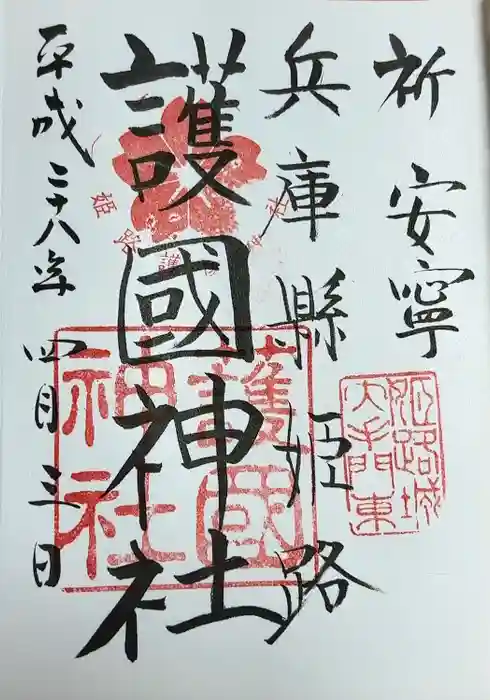 祈 安寧
兵庫縣姫路
護國神社
平成二十八年 四月三日
姫路城
大手門東
護國
神社
姫路護